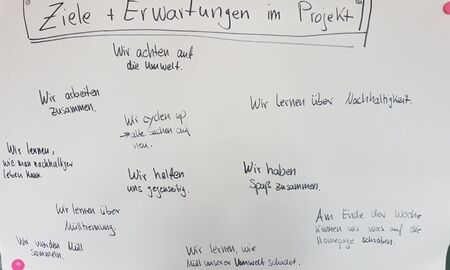 Ziele + Erwartungen im Projekt
Wir achten auf
die Umwelt.
Wir arbeiten
zusammen.
Wir lernen über Nachhaltigkeit.
Wir cyclen up
→ alte Sachen auf
neu.
Wir lernen,
wie man nachhaltiger
leben kann.
Wir helfen
uns gegenseitig.
Wir haben
Spaß zusammen.
Wir lernen über
Mülltrennung
Am Ende der Woche
können wir was auf die
Homepage schreiben.
Wir werden Müll
sammeln.
Wir lernen, wie
Müll unserer Umwelt schadet.